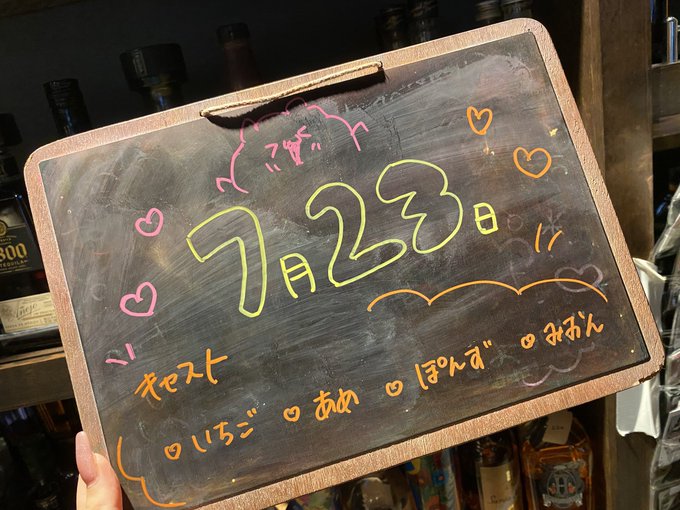 7月23日
キャスト
♡いちご ♡あめ ♡ぽんず ♡みおん
800
TEQUILA
Añejo